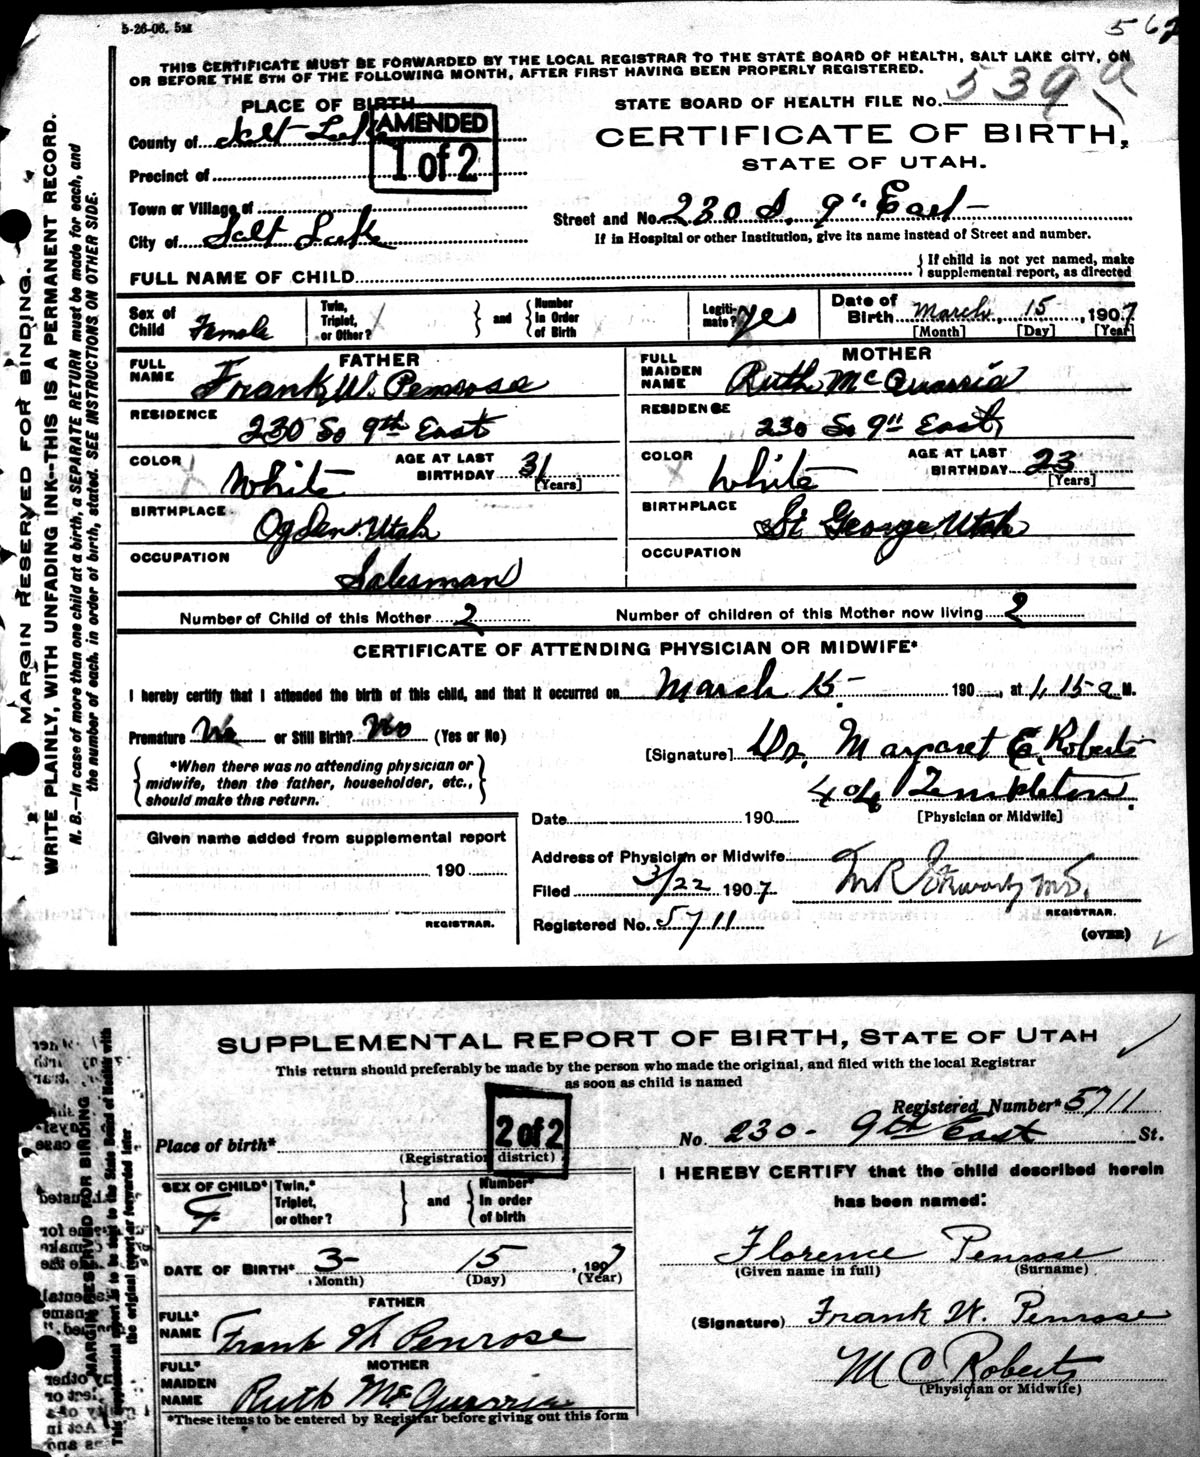 5-26-06. 5M
562
THIS CERTIFICATE MUST BE FORWARDED BY THE LOCAL REGISTRAR TO THE STATE BOARD OF HEALTH, SALT LAKE CITY, ON
OR BEFORE THE 5TH OF THE FOLLOWING MONTH, AFTER FIRST HAVING BEEN PROPERLY REGISTERED.
MARGIN RESERVED FOR BINDING.
WRITE PLAINLY, WITH UNFADING INK--THIS IS A PERMANENT RECORD.
N. B.—In case of more than one child at a birth, a SEPARATE RETURN must be made for each, and
the number of each, in order of birth, stated. SEE INSTRUCTIONS ON OTHER SIDE.
PLACE OF BIRTH
AMENDED
1 of 2
STATE BOARD OF HEALTH FILE No. 539
CERTIFICATE OF BIRTH,
STATE OF UTAH.
County of Salt Lake
Precinct of
Town or Village of
City of Salt Lake
Street and No. 230 S. 9" East
If in Hospital or other Institution, give its name instead of Street and number.
FULL NAME OF CHILD
If child is not yet named, make
supplemental report, as directed
Sex of Child Female
Twin, Triplet, or Other?
and
Number in Order of Birth
Legitimate? yes
Date of Birth March 15, 1907
[Month] [Day] [Year]
FATHER
FULL NAME Frank W. Penrose
RESIDENCE 230 So 9th East
COLOR White
AGE AT LAST BIRTHDAY 31
[Years]
BIRTHPLACE Ogden Utah
OCCUPATION Salesman
MOTHER
FULL MAIDEN NAME Ruth McQuarrie
RESIDENCE 230 So 9" East
COLOR White
AGE AT LAST BIRTHDAY 23
[Years]
BIRTHPLACE St George Utah
OCCUPATION
Number of Child of this Mother 2
Number of children of this Mother now living 2
CERTIFICATE OF ATTENDING PHYSICIAN OR MIDWIFE*
I hereby certify that I attended the birth of this child, and that it occurred on March 15 190 , at 1,15 a M.
Premature No or Still Birth? No (Yes or No)
*When there was no attending physician or
midwife, then the father, householder, etc.,
should make this return.
[Signature] Dr. Margaret C. Roberts
404 Templeton.
[Physician or Midwife]
Date 190
Address of Physician or Midwife
Given name added from supplemental report
190
REGISTRAR.
Filed 3/22 1907
REGISTRAR.
Registered No. 5711
(OVER)
SUPPLEMENTAL REPORT OF BIRTH, STATE OF UTAH
This return should preferably be made by the person who made the original, and filed with the local Registrar
as soon as child is named
MARGIN RESERVED FOR BINDING
2 of 2
Registered Number* 5711
Place of birth*
(Registration district)
No. 230 - 9th East St.
SEX OF CHILD* F
Twin,* Triplet, or other?
and
Number* In order of birth
DATE OF BIRTH* 3- 15 , 1907
(Month) (Day) (Year)
FATHER
FULL* NAME Frank W Penrose
MOTHER
FULL* MAIDEN NAME Ruth McQuarrie
*These items to be entered by Registrar before giving out this form
I HEREBY CERTIFY that the child described herein
has been named:
Florence Penrose
(Given name in full) (Surname)
(Signature) Frank W. Penrose
M C Roberts
(Physician or Midwife)